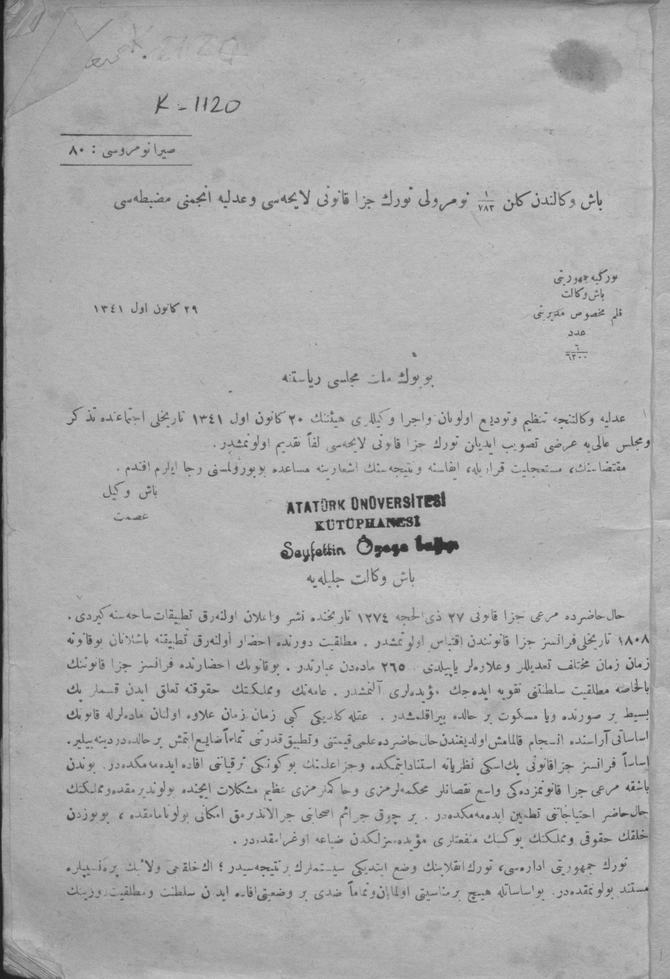 K-1120
صیرا نومروسی : ٨٠
باش وکالتدن کلن ١/٧٨٣ نومرولی تورك جزا قانونی لایحه‌سی و عدلیه انجمنی مضبطه‌سی
تورکیه جمهوریتی
باش وکالت
قلم مخصوص مدیریتی
عدد
٦/٦٣٠٠
٢٩ کانون اول ١٣٤١
بویوك ملت مجلسی ریاستنه
عدلیه وکالتنجه تنظیم و تودیع اولونان و اجرا وکیللری هیئتنك ٢٠ کانون اول ١٣٤١ تاریخلی اجتماعنده تذکر
و مجلس عالی‌یه عرضی تصویب ایدیلن تورك جزا قانونی لایحه‌سی لفاً تقدیم اولونمشدر .
مقتضاسنك، مستعجلیت قراریله، ایفاسنه و نتیجه‌سنك اشعارینه مساعده بویورولمسنی رجا ایلرم افندم .
باش وکیل
عصمت
ATATÜRK ÜNÜVERSİTESİ
KÜTÜPHANESİ
Seyfettin Özege
باش وکالت جلیله‌یه
حال حاضرده مرعی جزا قانونی ٢٧ ذی الحجه ١٢٧٤ تاریخنده نشر و اعلان اولنه‌رق تطبیقات ساحه‌سنه کیردی .
١٨٠٨ تاریخلی فرانسز جزا قانونندن اقتباس اولونمشدر . مطلقیت دورنده احضار اولنه‌رق تطبیقنه باشلانان بو قانونه
زمان زمان مختلف تعدیللر و علاوه‌لر یاپیلدی . ٢٦٥ ماده‌دن عبارتدر . بو قانونك احضارنده فرانسز جزا قانوننك
بالخاصه مطلقیت سلطنتنی تقویه ایده‌جك مؤیده‌لری آلنمشدر . عامه‌نك و مملکتك حقوقنه تعلق ایدن قسملر پك
بسیط بر صورتده و یا مسکوت بر حالده بیراقلمشدر . عقله کلدیکی کبی زمان زمان علاوه اولنان ماده‌لرله قانونك
اساساتی آراسنده انسجام قالمامش اولدیغندن حال حاضرده علمی قیمتنی و تطبیق قدرتنی تماماً ضایع ایتمش بر حالده‌در دینه‌بیلیر.
اساساً فرانسز جزا قانونی پك اسکی نظریاته استناد ایتمکده و جزا علمنك بوکونکی ترقیاتنی افاده ایده‌مه‌مکده‌در. بوندن
باشقه مرعی جزا قانونمزده‌کی واسع نقصانلر محکمه‌لرمزی و حاکملرمزی عظیم مشکلات ایچنده بولوندیرمقده و مملکتك
حال حاضر احتیاجاتنی تطمین ایده‌مه‌مکده‌در . بر چوق جرائم اصحابنی جزالاندیرمق امکانی بولونامامقده ، بو یوزدن
خلقك حقوقی و مملکتك یوکسك منفعتلری مؤیده‌سزلکدن ضیاعه اوغرامقده‌در .
تورك جمهوریتی اداره‌سی، تورك انقلابنك وضع ایتدیکی سیستملرك بر نتیجه‌سیدر؛ اك خلقجی و لائیك پرنسیپلره
مستند بولونمقده‌در. بو اساساتله هیچ بر مناسبتی اولمایان و تماماً ضدی بر وضعیتی افاده ایدن سلطنت و مطلقیت دورینك